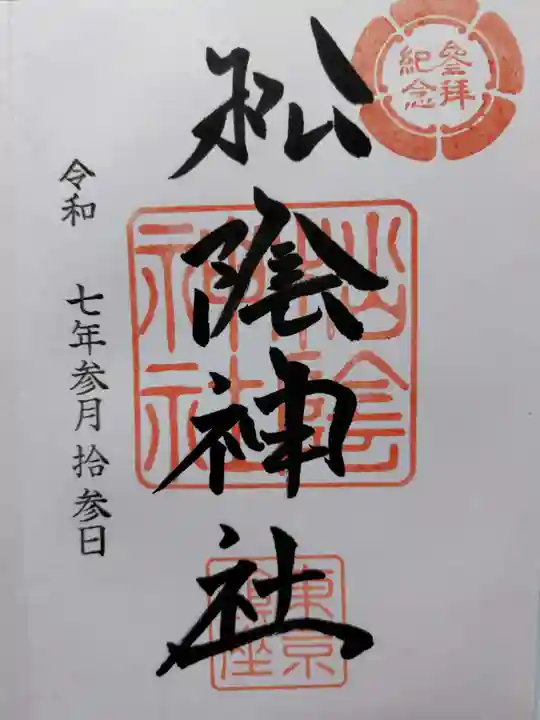 参拝
紀念
松陰神社
松陰
神社
東京
鎮座
令和 七年参月拾参日